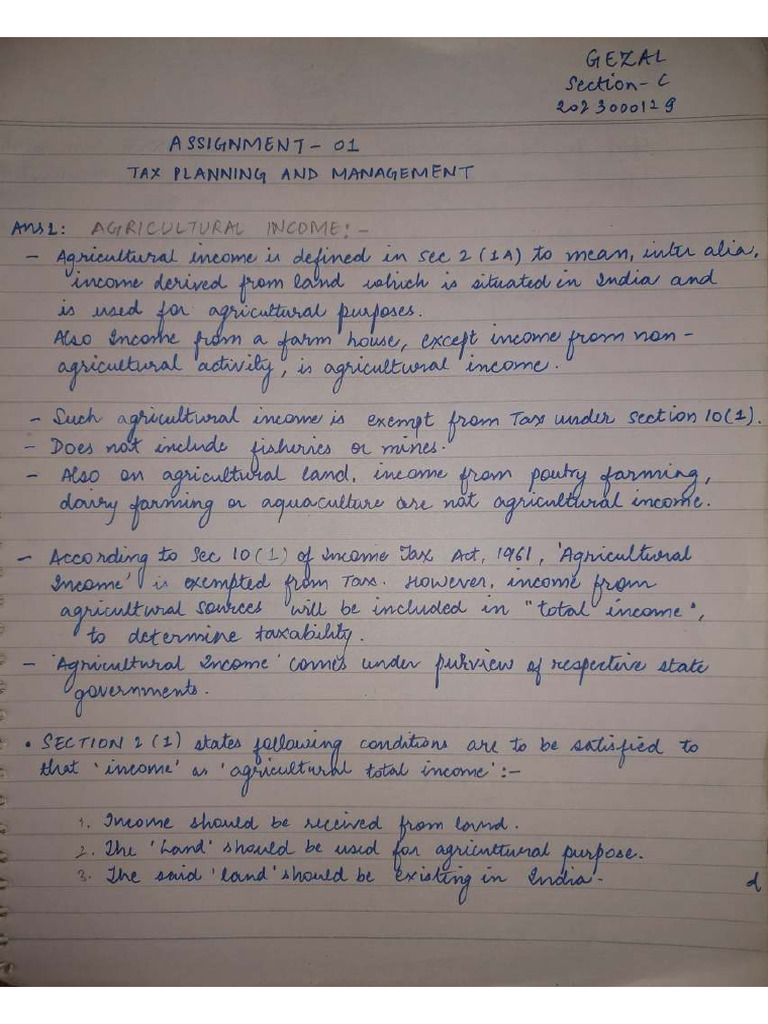 GEZAL
Section - C
2023000129
ASSIGNMENT - 01
TAX PLANNING AND MANAGEMENT
Ans1: AGRICULTURAL INCOME:-
- Agricultural income is defined in sec 2 (1A) to mean, inter alia,
income derived from land which is situated in India and
is used for agricultural purposes.
Also Income from a farm house, except income from non-
agricultural activity, is agricultural income.
- Such agricultural income is exempt from Tax under section 10(1).
- Does not include fisheries or mines.
- Also on agricultural land, income from poutry farming,
dairy farming or aquaculture are not agricultural income.
- According to Sec 10(1) of Income Tax Act, 1961, 'Agricultural
Income' is exempted from Tax. However, income from
agricultural sources will be included in "total income",
to determine taxability.
- 'Agricultural Income' comes under purview of respective state
governments.
• SECTION 2 (1) states following conditions are to be satisfied to
that 'income' as 'agricultural total income':-
1. Income should be received from land.
2. The 'Land' should be used for agricultural purpose.
3. The said 'land' should be existing in India.
d